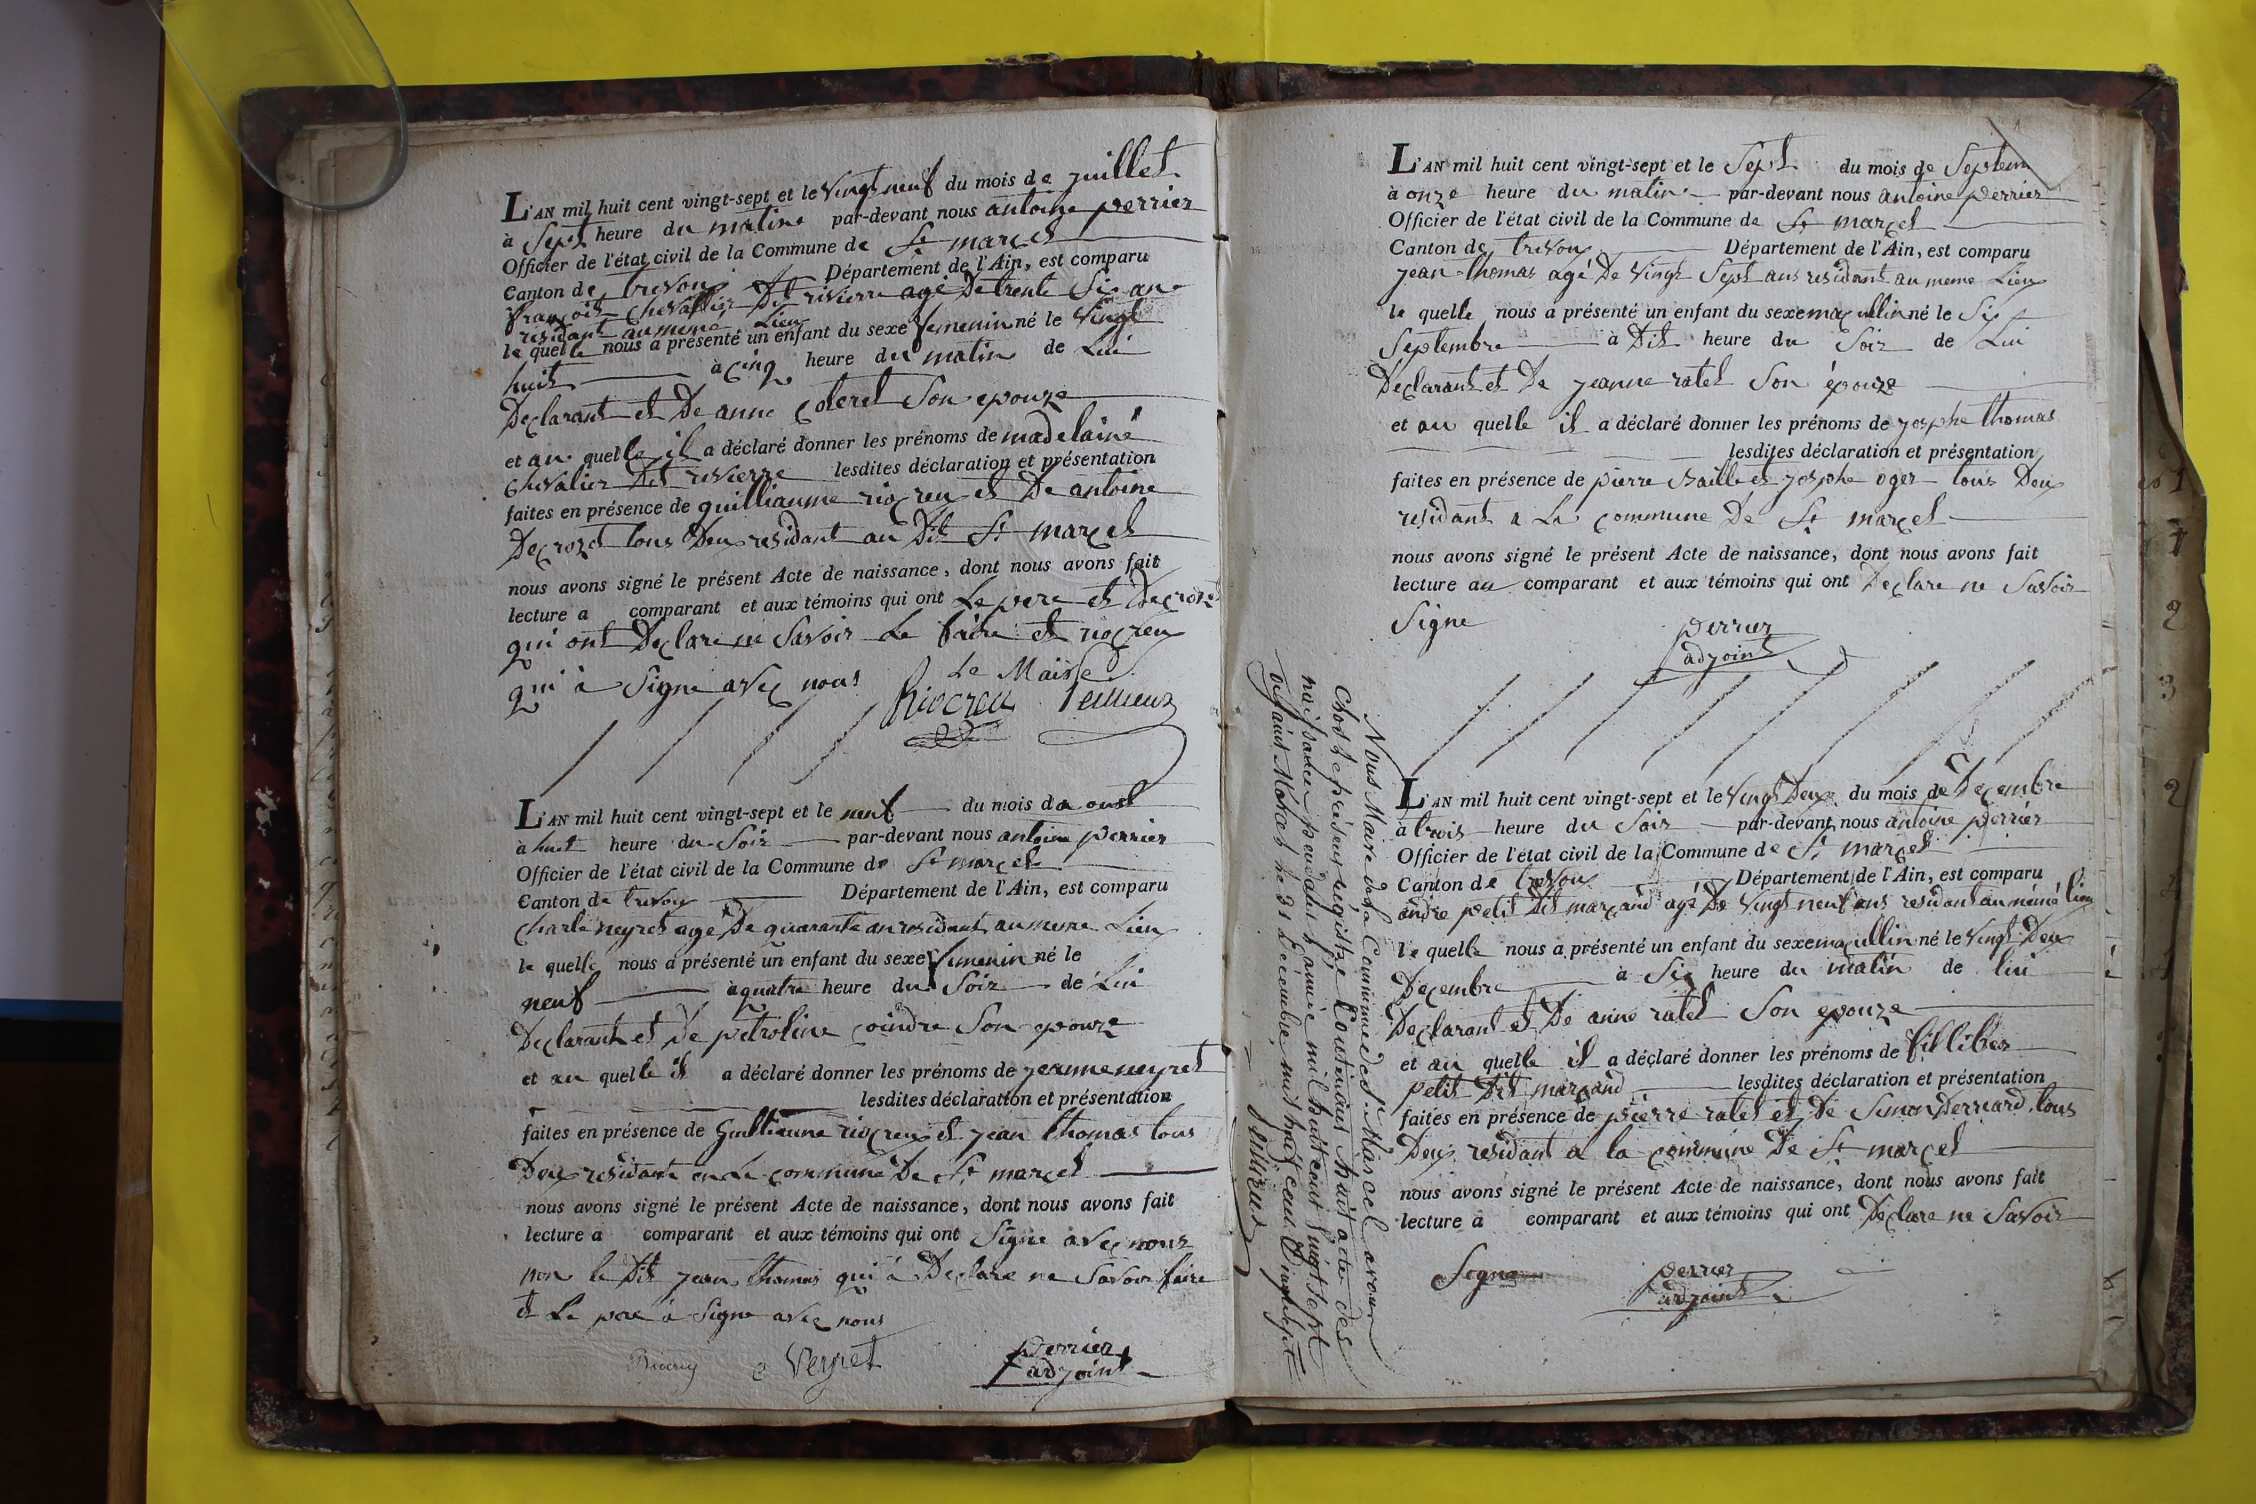 L'AN mil huit cent vingt-sept et le vingt neuf du mois de juillet
à Sept heure du matine par-devant nous antoine perrier
Officier de l'état civil de la Commune de St marcel
Canton de trevoux Département de l'Ain, est comparu
françois chevallier Dit rivierre agé De trente Six ans
residant au meme Lieu
le quelle nous a présenté un enfant du sexe femenin né le vingt
huit à cinq heure du matin de Lui
Declarant et De anne coteret Son epouze
et au quelle il a déclaré donner les prénoms de madelaine
chevalier Dit rivierre lesdites déclaration et présentation
faites en présence de guilliaume riocreu et De antoine
Decrozet tous Deux residant au Dit St marcel
nous avons signé le présent Acte de naissance, dont nous avons fait
lecture a comparant et aux témoins qui ont Le pere et Decrozet
qui ont Declare ne Savoir Le faire et riocreu
qui à Signe avec nous Le Maire
Riocreu
L'AN mil huit cent vingt-sept et le neuf du mois da oust
à huit heure du Soir par-devant nous antoine perrier
Officier de l'état civil de la Commune de St marcel
Canton de trevoux Département de l'Ain, est comparu
charle neyret age De quarante an residant au meme Lieu
le quelle nous a présenté un enfant du sexe femenin né le
neuf à quatre heure du Soir de Lui
Declarant et De petroline coindre Son epouze
et au quelle il a déclaré donner les prénoms de jeanne neyret
lesdites déclaration et présentation
faites en présence de Guilliaume riocreux et jean thomas tous
Deux residant en La commune De St marcel
nous avons signé le présent Acte de naissance, dont nous avons fait
lecture a comparant et aux témoins qui ont Signe avec nous
non le Dit jean thomas qui à Declare ne Savoir faire
et Le pere à Signe avec nous
perrier
adjoint
L'AN mil huit cent vingt-sept et le Sept du mois de Septem
à onze heure du matin par-devant nous antoine perrier
Officier de l'état civil de la Commune de St marcel
Canton de trevoux Département de l'Ain, est comparu
jean thomas agé De vingt Sept ans residant au meme Lieu
le quelle nous a présenté un enfant du sexe macullin né le Six
Septembre à Dix heure du Soir de Lui
Declarant et De jeanne ratet Son épouze
et au quelle il a déclaré donner les prénoms de josphe thomas
lesdites déclaration et présentation
faites en présence de pierre et josphe oger tous Deux
residant a La commune De St marcel
nous avons signé le présent Acte de naissance, dont nous avons fait
lecture au comparant et aux témoins qui ont Declare ne Savoir
Signe
perrier
adjoint
L'AN mil huit cent vingt-sept et le vingt Deux du mois de Decembre
à trois heure du Soir par-devant nous antoine perrier
Officier de l'état civil de la Commune de St marcel
Canton de trevoux Département de l'Ain, est comparu
andre petit Dit marcand agé De vingt neuf ans residant au méme lieu
le quelle nous a présenté un enfant du sexe macullin né le vingt Deux
Decembre à Six heure du matin de lui
Declarant et De anne ratet Son epouze
et au quelle il a déclaré donner les prénoms de fillibes
petit Dit marcand lesdites déclaration et présentation
faites en présence de pierre ratet et De Simon perriard tous
Deux residant a la commune De St marcel
nous avons signé le présent Acte de naissance, dont nous avons fait
lecture a comparant et aux témoins qui ont Declare ne Savoir
Signe
perrier
adjoint
Nous Maire de la Commune de St Marcel avons
Clos le présent registre Contenant huit acte des
naissances pendant l'année mil huit cent vingt sept
St Marcel ce 31 Décembre mil huit cent vingt sept